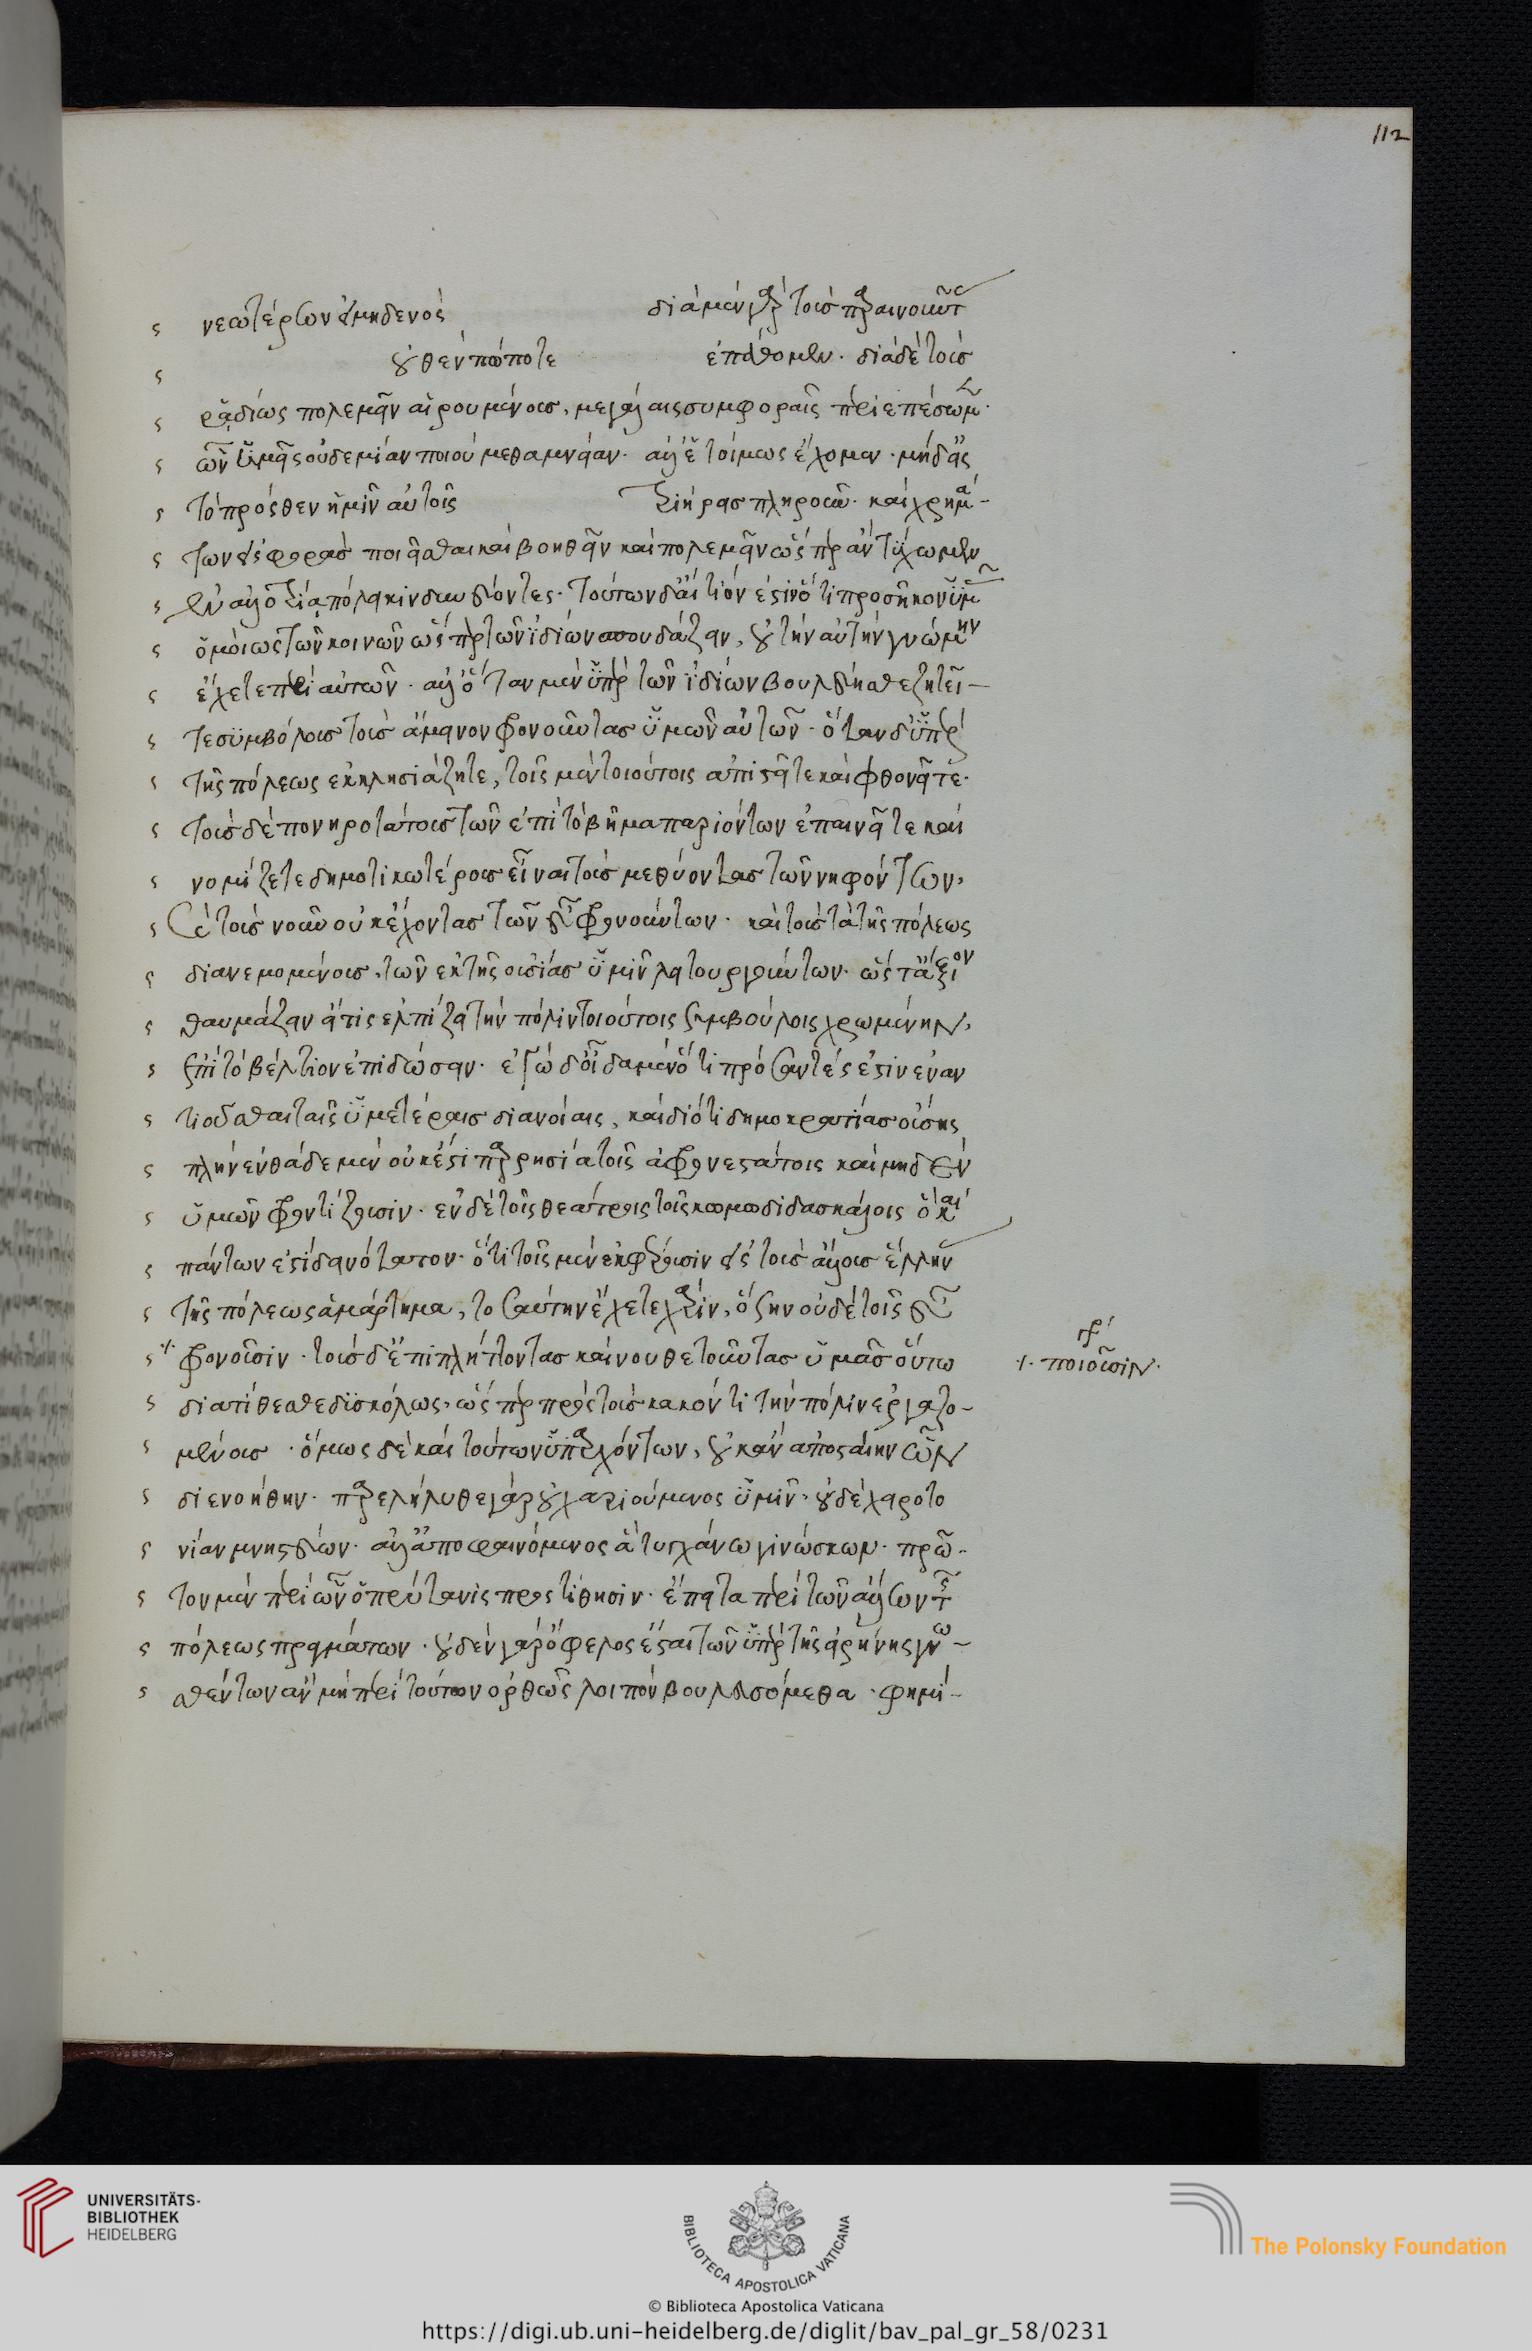 νεωτέρων ἢ μηδενὸς διὰ μὲν γὰρ τοὺς παραινοῦντας
οὐθὲν πώποτε ἐπάθομεν · διὰ δὲ τοὺς
ῥᾳδίως πολεμεῖν αἱρουμένους, μεγάλαις συμφοραῖς περιεπέσομεν·
ὧν ἡμεῖς οὐδεμίαν ποιούμεθα μνείαν· ἀλλ' ἑτοίμως ἔχομεν · μηδ' εἰς
τὸ πρόσθεν ἡμῖν αὐτοῖς τριήρεις πληροῦν· καὶ χρημά-
των εἰσφορὰς ποιεῖσθαι καὶ βοηθεῖν καὶ πολεμεῖν ὥσπερ ἂν τύχωμεν
ἐν ἀλλοτρίᾳ πόλει κινδυνεύοντες· τούτων δ' αἴτιόν ἐστιν ὅτι προσῆκον ὑμᾶς
ὁμοίως τῶν κοινῶν ὥσπερ τῶν ἰδίων σπουδάζειν, οὐ τὴν αὐτὴν γνώμην
ἔχετε περὶ αὐτῶν · ἀλλ' ὅταν μὲν ὑπὲρ τῶν ἰδίων βουλεύησθε ζητεῖ-
τε συμβούλους τοὺς ἄμεινον φρονοῦντας ὑμῶν αὐτῶν · ὅταν δ' ὑπὲρ
τῆς πόλεως ἐκκλησιάζητε, τοῖς μὲν τοιούτοις ἀπιστεῖτε καὶ φθονεῖτε·
τοὺς δὲ πονηροτάτους τῶν ἐπὶ τὸ βῆμα παριόντων ἐπαινεῖτε καὶ
νομίζετε δημοτικωτέρους εἶναι τοὺς μεθύοντας τῶν νηφόντων,
καὶ τοὺς νοῦν οὐκ ἔχοντας τῶν εὖ φρονούντων · καὶ τοὺς τὰ τῆς πόλεως
διανεμομένους, τῶν ἐκ τῆς οὐσίας ὑμῖν λειτουργούντων· ὥστ' ἄξιον
θαυμάζειν εἴ τις ἐλπίζει τὴν πόλιν τοιούτοις συμβούλοις χρωμένην,
ἐπὶ τὸ βέλτιον ἐπιδώσειν· ἐγὼ δ' οἶδα μὲν ὅτι πρόσαντές ἐστιν ἐναν
τιοῦσθαι ταῖς ὑμετέραις διανοίαις, καὶ διότι δημοκρατίας οὔσης
πλὴν ἐνθάδε μὲν οὐκ ἔστι παρρησία τοῖς ἀφρονεστάτοις καὶ μηδὲν
ὑμῶν φροντίζουσιν · ἐν δὲ τοῖς θεάτροις τοῖς κωμωδιδασκάλοις ὃ καὶ
πάντων ἐστὶ δεινότατον· ὅτι τοῖς μὲν ἐκφέρουσιν εἰς τοὺς ἄλλους ἕλληνας
τῆς πόλεως ἁμάρτημα, τοσαύτην ἔχετε χάριν, ὅσην οὐδὲ τοῖς εὖ
⁒ φρονοῦσιν · τοὺς δ' ἐπιπλήττοντας καὶ νουθετοῦντας ὑμᾶς οὕτω
γρ΄
⁒ ποιοῦσιν·
διατίθεσθε δυσκόλως, ὥσπερ πρὸς τοὺς κακόν τι τὴν πόλιν ἐργαζο-
μένους · ὅμως δὲ καὶ τούτων ὑπαρχόντων, οὐκ ἂν ἀποσταίην ὧν
διενοήθην· παρελήλυθε γὰρ οὐ χαριούμενος ὑμῖν· οὐδὲ χειροτο
νίαν μνηστεύων· ἀλλ' ἀποφαινόμενος ἃ τυγχάνω γινώσκων· πρῶ-
τον μὲν περὶ ὧν ὁ πρύτανις προστίθησιν· ἔπειτα περὶ τῶν ἄλλων τῆς
πόλεως πραγμάτων · οὐδὲν γὰρ ὄφελος ἔσται τῶν ὑπὲρ τῆς εἰρήνης γνω-
σθέντων ἂν μὴ περὶ τούτων ὀρθῶς λοιπὸν βουλευσόμεθα · φημὶ-
112
UNIVERSITÄTS-
BIBLIOTHEK
HEIDELBERG
BIBLIOTECA APOSTOLICA VATICANA
The Polonsky Foundation
© Biblioteca Apostolica Vaticana
https://digi.ub.uni-heidelberg.de/diglit/bav_pal_gr_58/0231